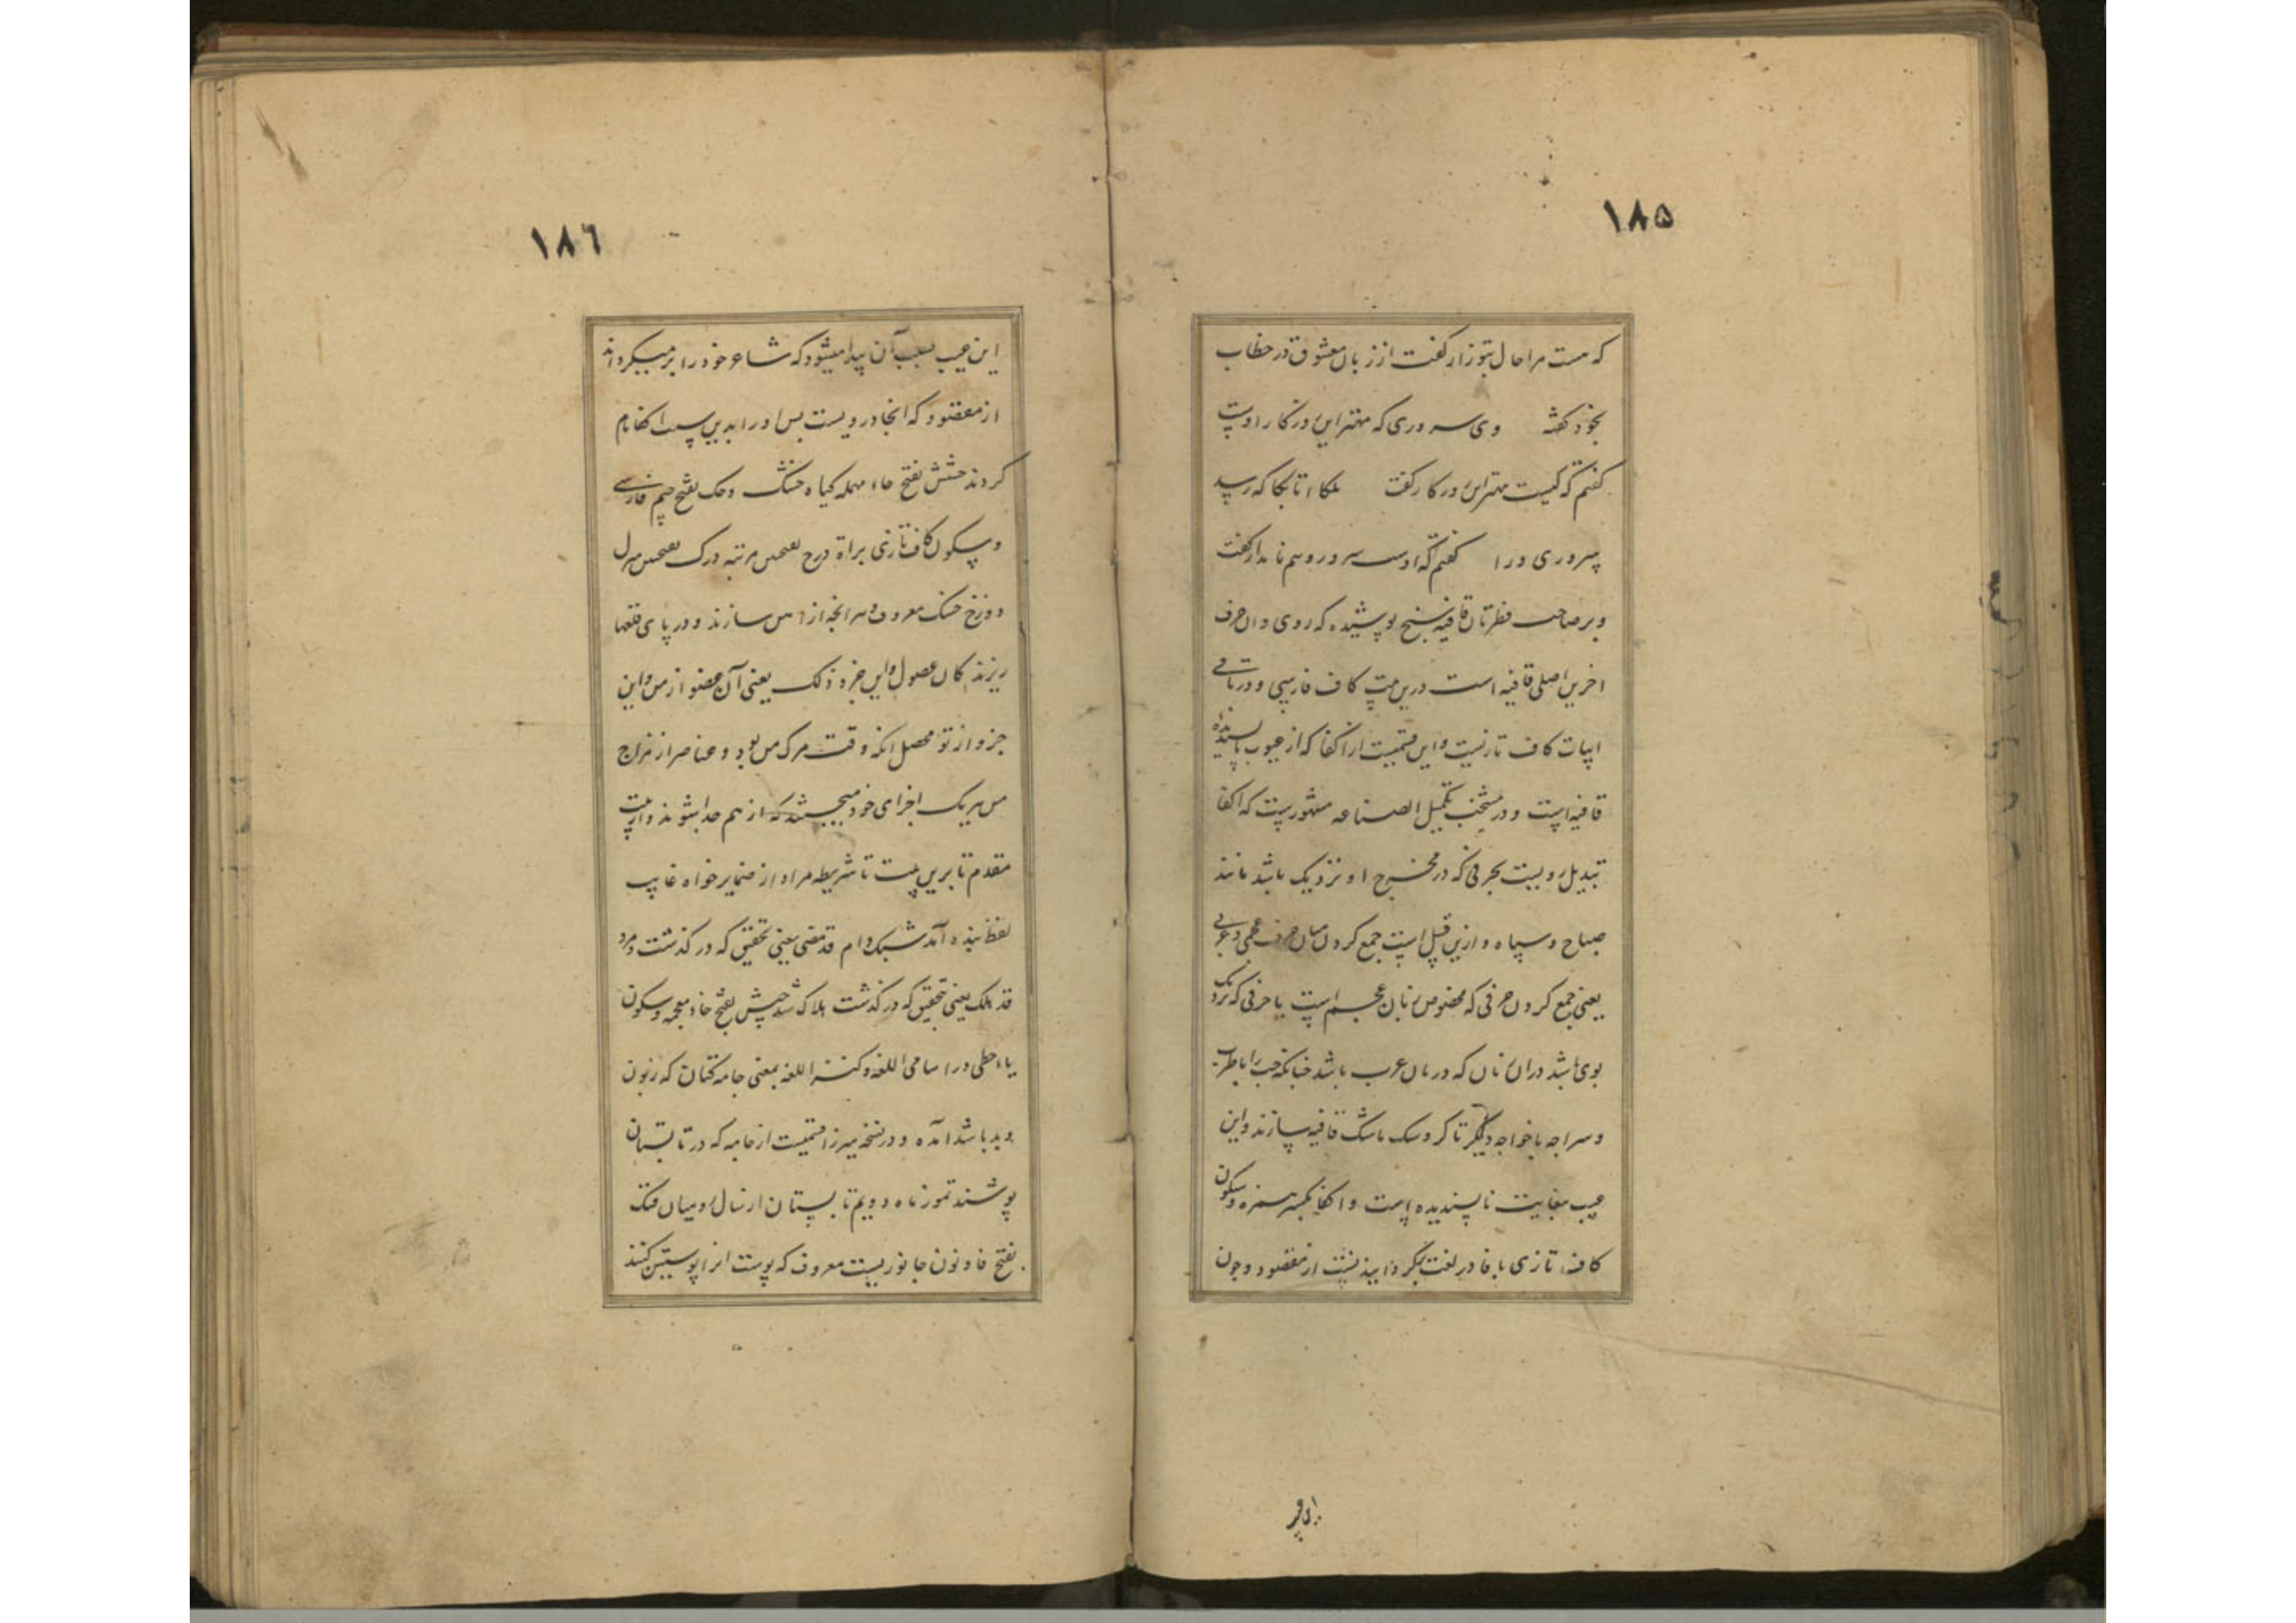 ١٨٥
که هست مرا حال بتو زار گفت از زبان معشوق در خطاب
بخود گفته وی سروری که مهتر این ورکار اوست
گفتم که کیست مهتر این ورکار گفت ملکا تا بجا که رسید
سروری ورا گفتم که اوست سرور و هم نامدار گفت
و بر صاحب فطرتان قافیه سنج پوشیده که روی و ان حرف
اخرین اصلی قافیه است درین بیت کاف فارسی و در باقی
ابیات کاف تازیست و این قسمیست از اکفا که از عیوب ناپسندیده
قافیه است و در منتخب تکمیل الصناعه مشهورست که اکفا
تبدیل رویست بحرفی که در مخرج او نزدیک باشد مانند
صباح و سپاه و ازین قبیل است جمع کردن میان حرف عجمی و عربی
یعنی جمع کردن حرفی که مخصوص زبان عجم است یا حرفی که نزدیک
بوی باشد در ان زبان که در زبان عرب باشد چنانکه چپ را با طرب
و سراجه با خواجه دیگر تا کر و سک با شک قافیه سازند و این
عیب بغایت ناپسندیده است و اکفا بکسر همزه و سکون
کاف تازی با فا در لغت بگردانیدنست از مقصود و چون
١٨٦
این عیب بسبب آن پیدا میشود که شاعر خود را بر میگرداند
از مقصود که انجا رویست پس او را بدین سبب اکفا نام
کردند حشش بفتح حاء مهمله گیاه خشک و چک بفتح جیم فارسی
و سکون کاف تازی براة درج مرتبه درک منزل
دوزخ خسک معروف و هر انچه از اهن سازند و در پای قلعها
ریزند کان عضو لی و این جزو ذلک یعنی آن عضو از من و این
جزو از تو محصل انکه وقت مرگ من بود و عناصر از مزاج
من هر یک اجزای خود میجستند که از هم جدا شوند و از بیت
مقدم تا برین بیت تا شریطه مراد از ضمایر خواه غایب
لفظ بنده آمد شبک دام قد مضی یعنی تحقیق که در گذشت و مرد
قد هلک یعنی تحقیق که در گذشت هلاک شد خیش بفتح خاء معجمه و سکون
یاء حطی در اسامی اللغه و کنز اللغه بمعنی جامه کتان که زبون
و بد باشد آمده و در نسخه میرزا قسمیست از جامه که در تابستان
پوشند تموز ماه دویم تابستان از سال رومیان فنک
بفتح فا و نون جانوریست معروف که پوست انرا پوستین کنند